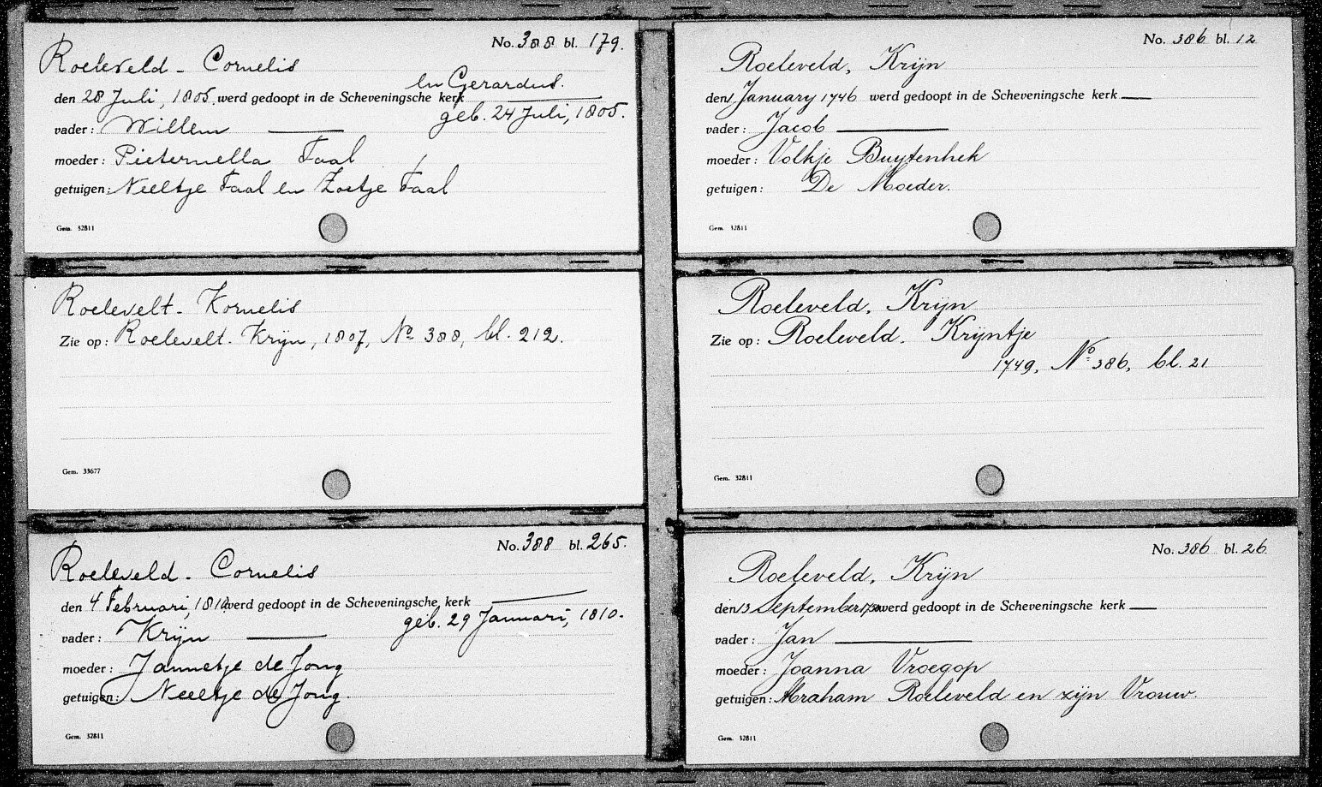 No. 388 bl. 179.
Roeleveld - Cornelis
en Gerardus.
den 28 Juli, 1805, werd gedoopt in de Scheveningsche kerk
geb. 24 Juli, 1805.
vader: Willem
moeder: Pieternella Taal
getuigen: Neeltje Taal en Zoetje Taal
Gem. 32811
Roelevelt - Kornelis
Zie op: Roelevelt. Krijn, 1807, No 388, bl. 212.
Gem. 33677
No. 388 bl. 265.
Roeleveld - Cornelis
den 4 Februari, 1810 werd gedoopt in de Scheveningsche kerk
geb. 29 Januari, 1810.
vader: Krijn
moeder: Jannetje de Jong
getuigen: Neeltje de Jong.
Gem. 32811
No. 386 bl. 12
Roeleveld, Krijn
den 1 January 1746 werd gedoopt in de Scheveningsche kerk
vader: Jacob
moeder: Volkje Buytenhek
getuigen: De Moeder.
Gem. 32811
Roeleveld, Krijn
Zie op: Roeleveld, Krijntje
1749, No 386, bl. 21
Gem. 32811
No. 386 bl. 26
Roeleveld, Krijn
den 13 September werd gedoopt in de Scheveningsche kerk
vader: Jan
moeder: Joanna Vroegop
getuigen: Abraham Roeleveld en zijn Vrouw.
Gem. 32811